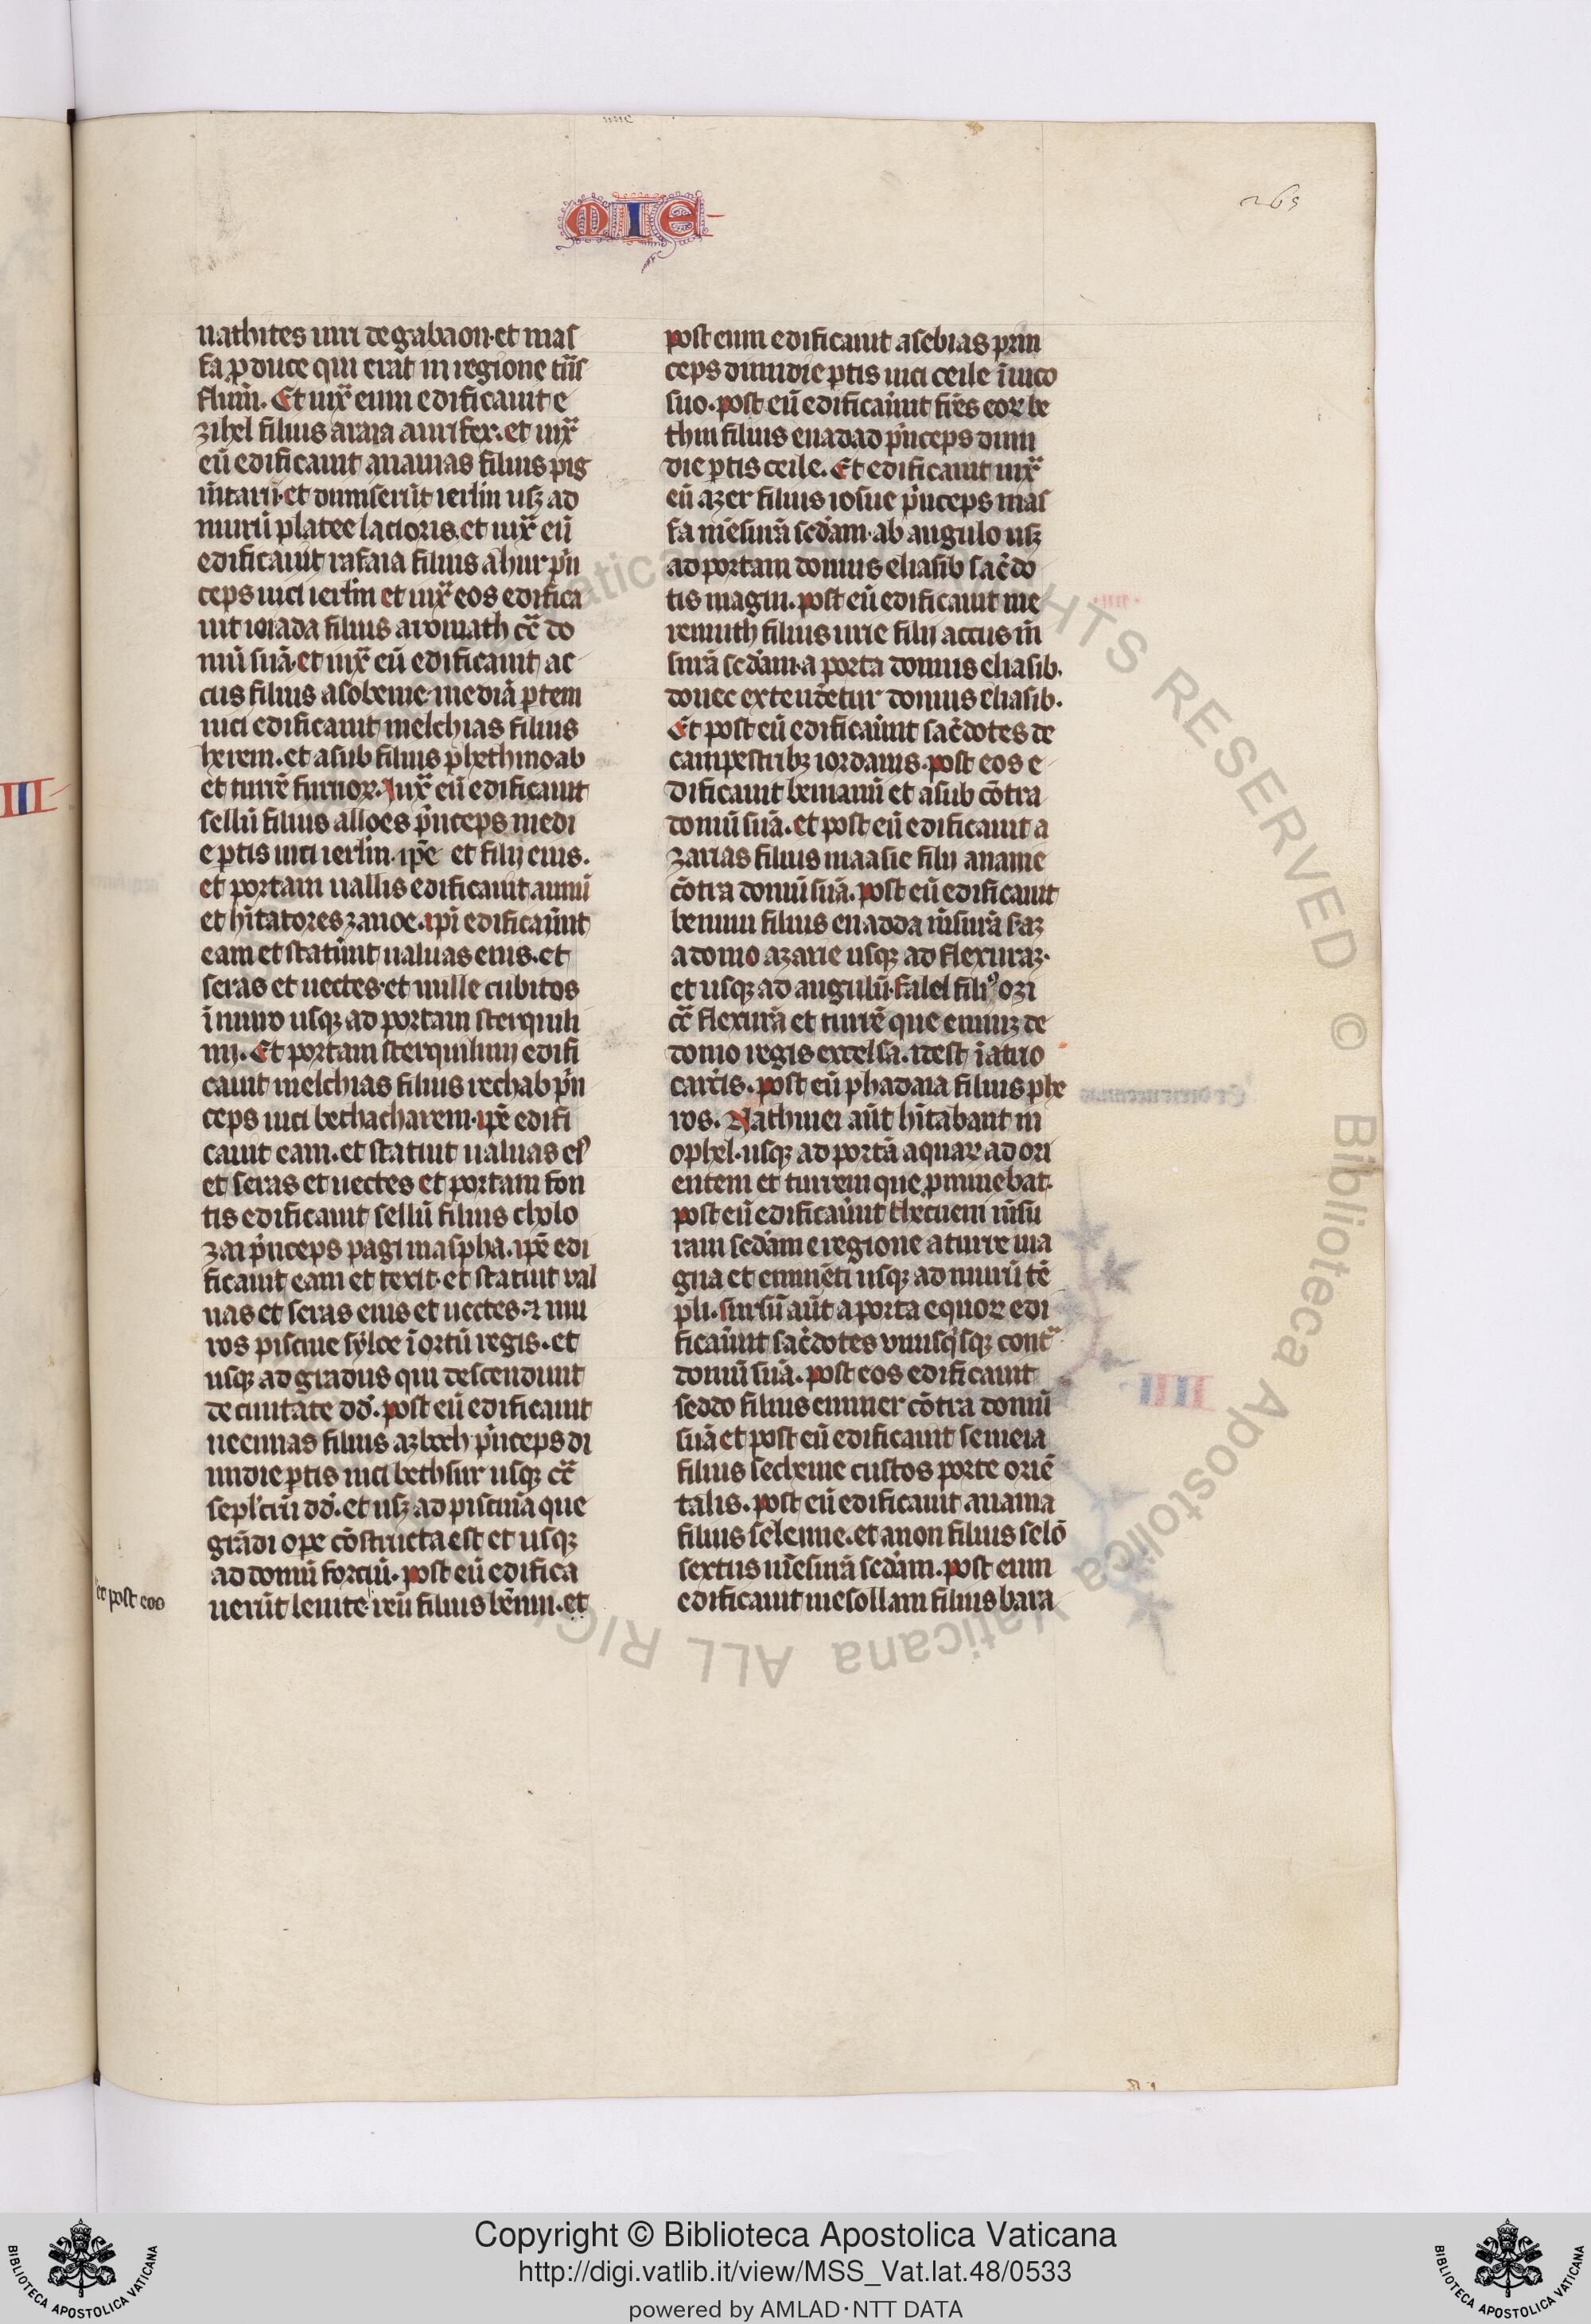 MIE
265
nathites uiri de gabaon. et mas
fa p̱ duce qui erat in regione tͣns
flum̄. Et iuxͣ eum edificauit e
zihel filius araia aurifex. et iuxͣ
eū edificauit ananias filius pig
m̄tarii. et dimiserūt ierlm̄ usqꝫ ad
murū platee lacioris. et iuxͣ eū
edificauit rafaia filius ahur pͥn
ceps uici ierlm̄ et iuxͣ eos edifica
uit ieiada filius aromath cͣ do
mū suā. et iuxͣ eū edificauit ac
cus filius asobenie. mediā ꝑtem
uici edificauit melchias filius
herem. et asub filius phethmoab
et turrē furnoꝝ. Iuxͣ eū edificauit
sellū filius alloes pͥnceps medi
e ꝑtis uici ierlm̄. ip̄e et filij eius.
et portam uallis edificauit anmū
et hītatores zanoe. ip̄i edificauūnt
eam et statūnt ualuas eius. et
seras et uectes. et mille cubitos
ī muro usqꝫ ad portam sterquili
nij. Et portam sterquilinij edifi
cauit melchias filius rechab pͥn
ceps uici bethacharem. ip̄e edifi
cauit eam. et statuit ualuas eiꝰ
et seras et uectes et portam fon
tis edificauit sellū filius cholo
zai pͥnceps pagi maspha. ip̄e edi
ficauit eam et texit. et statuit val
uas et seras eius et uectes. ⁊ mu
ros piscine syloe ī ortū regis. et
usqꝫ ad gradus qui descendunt
de ciuitate dd̄. post eū edificauit
neemias filius azboch pͥnceps di
midie ꝑtis uici bethsur usqꝫ cͣ
sepl'crū dd̄. et usqꝫ ad piscinā que
grādi ope cōstructa est et usqꝫ
ad domū forciū. post eū edifica
uerūt leuite. reū filius bēnni. et
et post eos
post eum edificauit asebias prin
ceps dimidie ꝑtis uici ceile ī uico
suo. post eū edificauūnt frēs eoꝝ be
thin filius enadad pͥnceps dimi
die ꝑtis ceile. Et edificauit iuxͣ
eū azer filius iosue pͥnceps mas
fa mēsurā scd̄am. ab angulo usqꝫ
ad portam domus eliasib sac̄do
tis magni. post eū edificauit me
remuth filius urie filij accus m̄
surā scd̄am. a porta domus eliasib.
donec extend̄etur domus eliasib.
Et post eū edificauūnt sac̄dotes de
campestribꝫ iordanis. post eos e
dificauit beniamī et asub cōtra
domū suā. et post eū edificauit a
zarias filius maasie filij ananie
cōtra domū suā. post eū edificauit
bennui filius enadda m̄surā scd̄aꝫ
a domo azarie usqꝫ ad flexuraꝫ.
et usqꝫ ad angulū. falel filiꝰ ozi
cͣ flexurā et turrē que eminꝫ de
domo regis excelsa. idest ī atrio
carc̄is. post eū phadaia filius phe
ros. Nathinei aūt hītabant in
ophel. usqꝫ ad portā aquaꝝ ad ori
entem et turrem que p̱minebat.
post eū edificauūnt thecueni m̄su
ram scd̄am e regione a turre ma
gna et eminēti usqꝫ ad murū tē
pli. sursū aūt a porta equoꝝ edi
ficauūnt sac̄dotes vnusqͥsqꝫ contͣ
domū suā. post eos edificauit
seddo filius emmer cōtra domū
suā et post eū edificauit semeia
filius secheme custos porte oriē
talis. post eū edificauit anania
filius selemie. et anon filius selō
sextus mēsurā scd̄am. post eum
edificauit mesollam filius bara
III
Copyright © Biblioteca Apostolica Vaticana
http://digi.vatlib.it/view/MSS_Vat.lat.48/0533
powered by AMLAD·NTT DATA
BIBLIOTECA APOSTOLICA VATICANA
BIBLIOTECA APOSTOLICA VATICANA
© Biblioteca Apostolica Vaticana ALL RIGHTS RESERVED